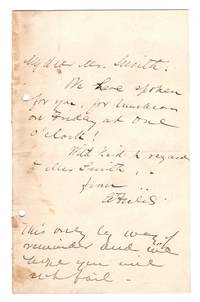 My dear Mr. Smith.
We have spoken
for you, for luncheon
on Friday at one
o'clock!
With kindest regards
to Mrs Smith,
from ..
This only by way of
reminder and we
hope you will
not fail.